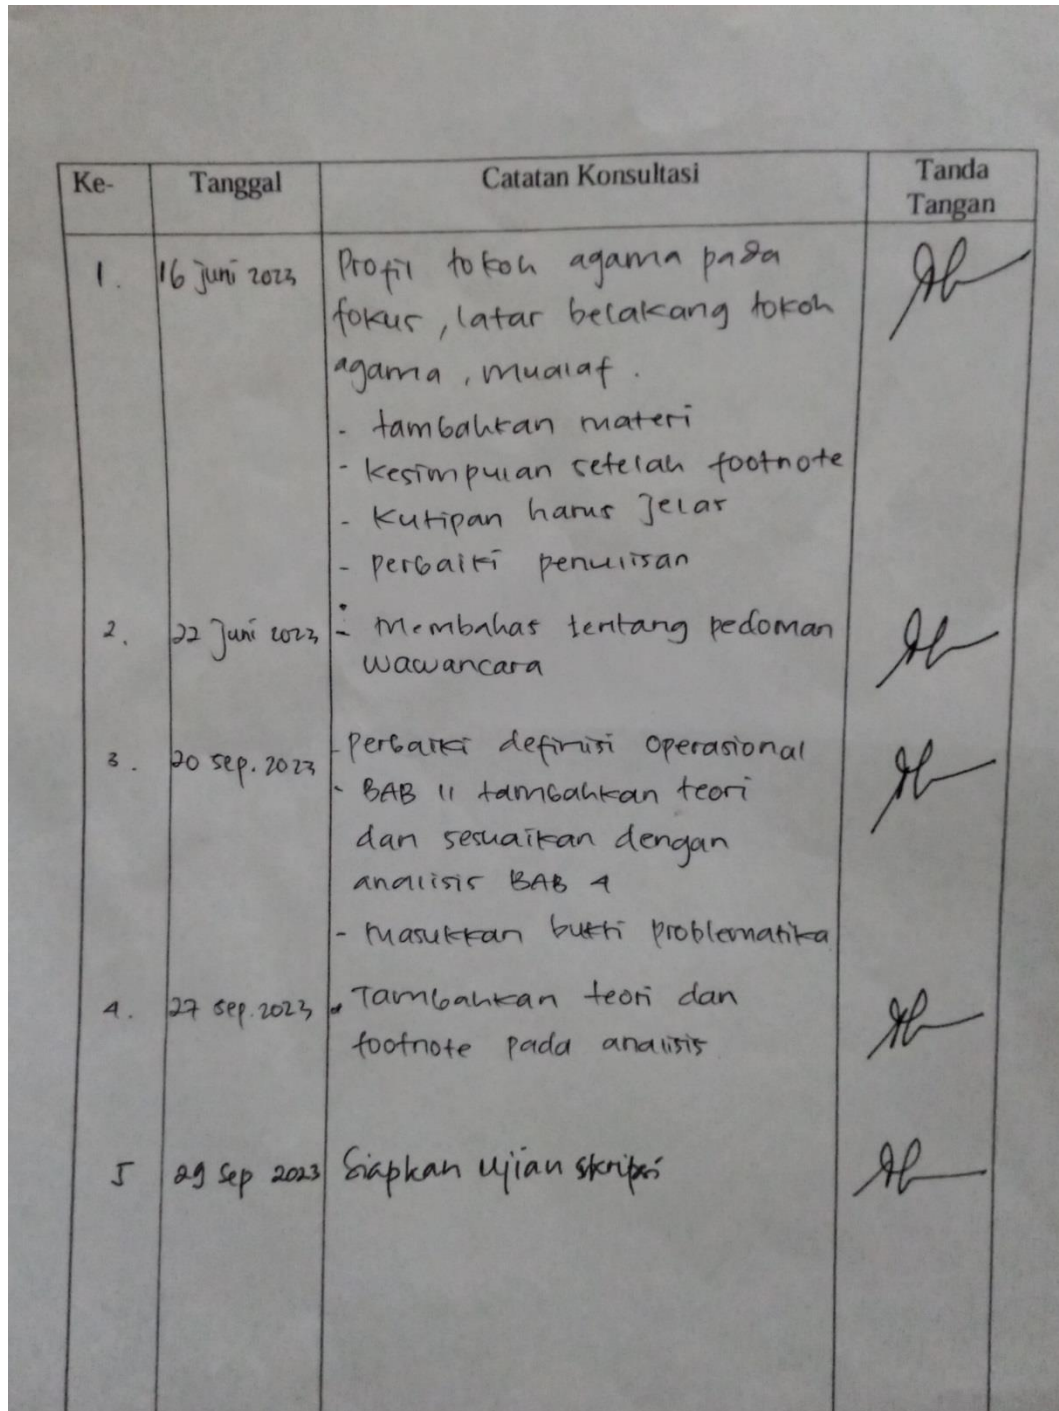 Ke- Tanggal Catatan Konsultasi Tanda
Tangan
1. 16 juni 2023 Profil tokoh agama pada
fokus, latar belakang tokoh
agama, mualaf.
- tambahkan materi
- kesimpulan setelah footnote
- Kutipan harus Jelas
- perbaiki penulisan
2. 22 Juni 2023 - Membahas tentang pedoman
wawancara
3. 20 sep. 2023 - perbaiki definisi operasional
- BAB II tambahkan teori
dan sesuaikan dengan
analisis BAB 4
- Masukkan bukti problematika
4. 27 sep. 2023 . Tambahkan teori dan
footnote pada analisis
5 29 Sep 2023 Siapkan ujian skripsi